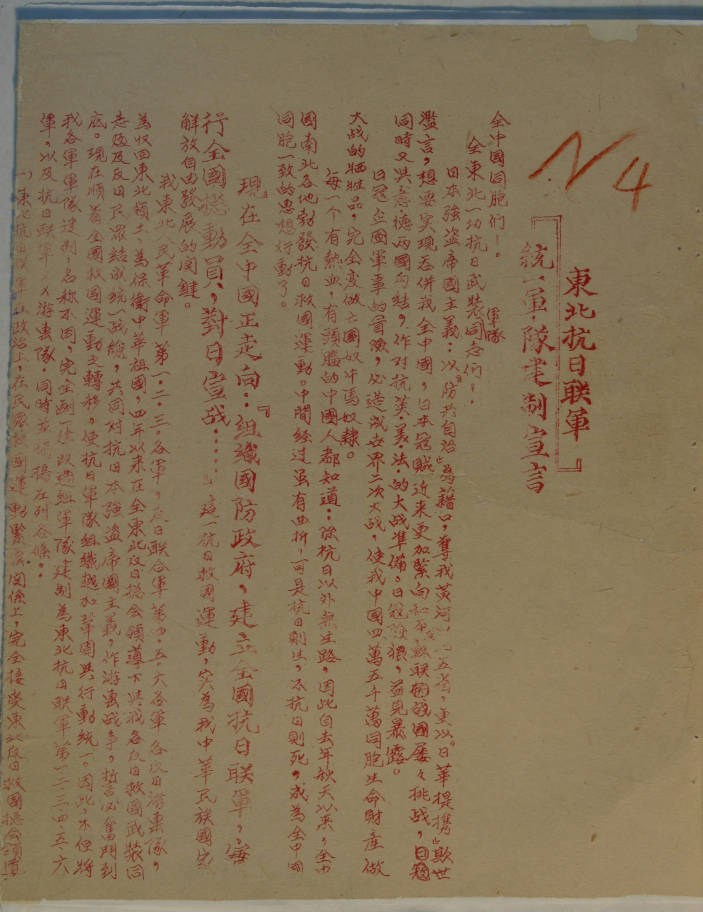 N4
『東北抗日联軍
統一軍隊建制宣言』
全中國同胞们！。
全東北一切抗日武裝軍隊同志们！.
日本強盗帝國主義：以"防共自治"為藉口，奪我黄河以北五省，更以"日華提携"欺世
濫言，想要实現吞併我全中國，日本冦賊近來更加緊向和平蘇联祖國屡々挑战，日冦
同時又與意德两國勾結，作对抗英·美·法·的大战準俻，日冦猖狠，益見暴露。
日冦在國軍事的冒險，必造成世界二次大战，使我中國四萬五千萬同胞生命財産做
大战的牺牲品，完全変做亡國奴牛馬奴隷。
每一个有熱血，有頭腦的中國人都知道：除抗日以外無生路，因此自去年秋天以來，全中
國南北，各地勃發抗日救國運動。中間经过虽有曲折，可是抗日則生，不抗日則死，成為全中國
同胞一致的思想行動了。
現在全中國正走向：『組織國防政府，建立全國抗日联軍，实
行全國總動員，對日宣战……』這一抗日救國運動，实為我中華民族國家
解放自由發展的関鍵。
我東北人民革命軍第一·二·三·各軍，反日联合軍第四·五·六各軍各反日游击隊，
為収回東北領土，為保衛中華祖國，四年以來在全東北反日總会領導下與我各反日救國武裝同
志及反日民眾結成統一战線，共同对抗日本強盗帝國主義，作游击战爭，誓言必奮鬥到
底。現在順着全國救國運動之轉移，使抗日軍隊組織越加鞏固與行動統一。因此不但將
我各軍軍隊建制，名称不同，完全劃一建改造組軍隊建制為東北抗日联軍第一·二·三·四·五·六
軍，以及抗日联軍××游击隊。同時並揭橥在列各條：
一，東北抗日联軍在政治上，在民眾救國運動緊密関係上，完全接受東北反日救國總会領導